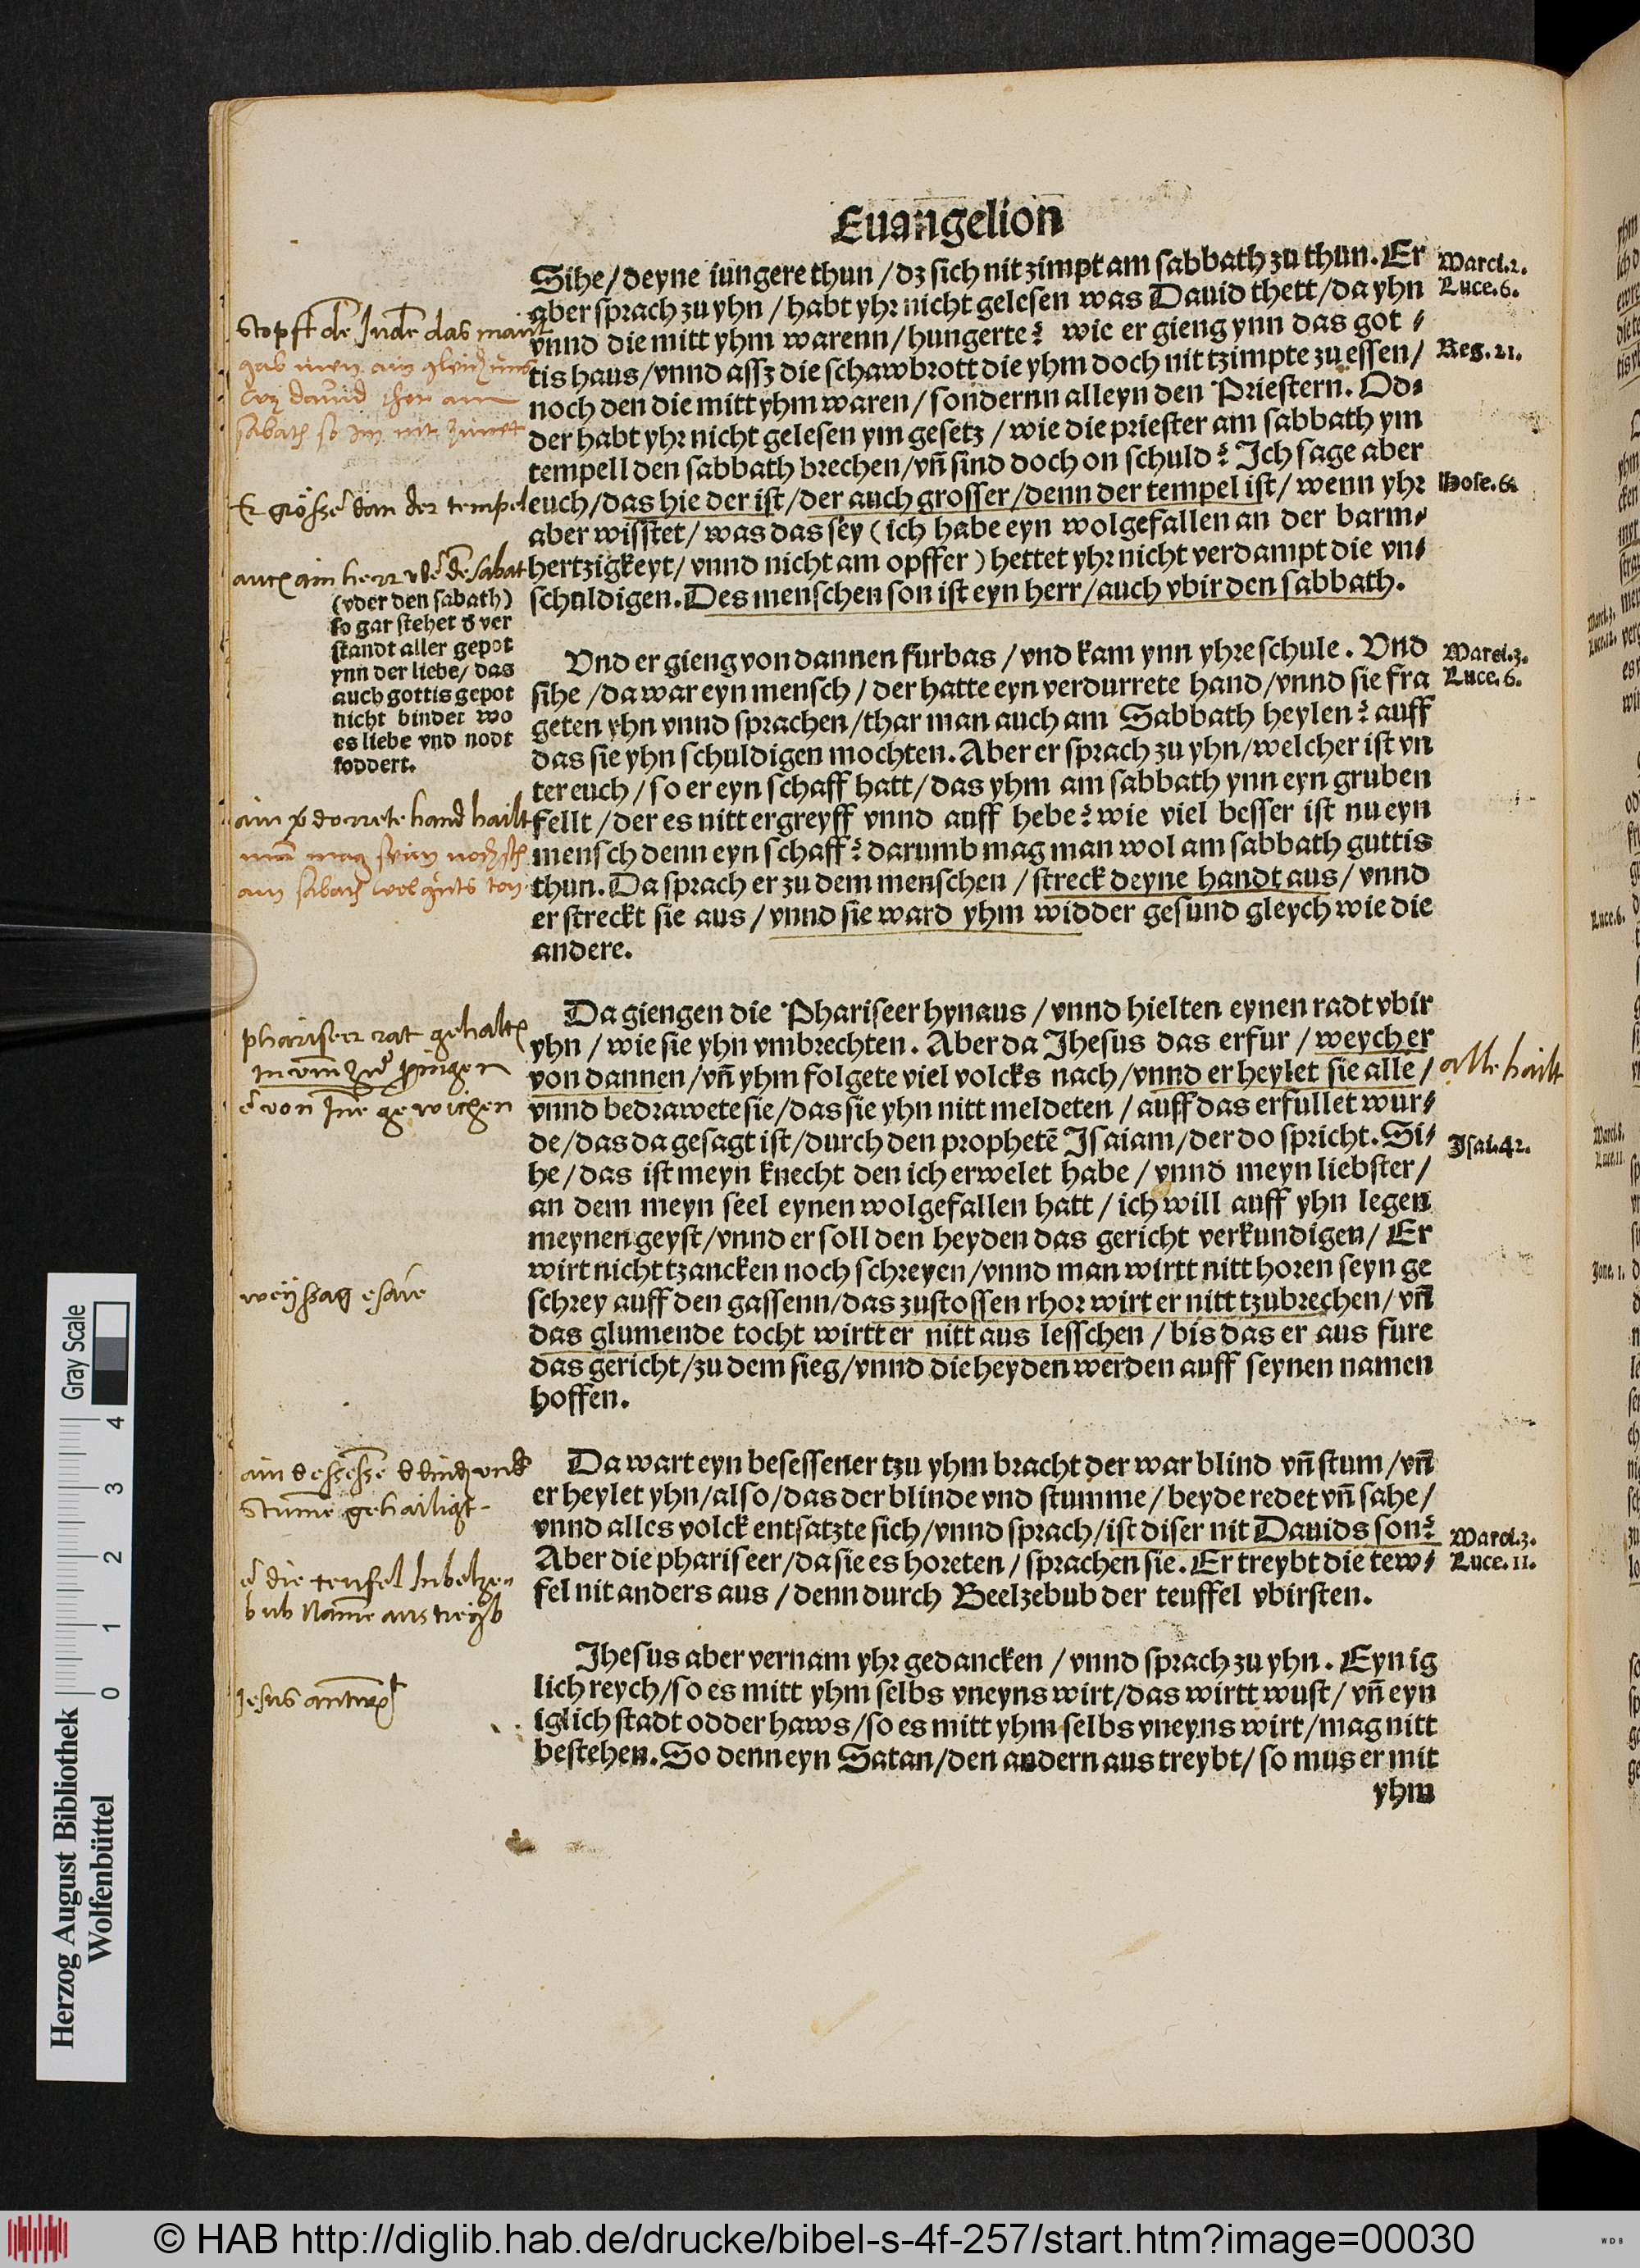 Euangelion
Sihe/deyne iungere thun/dz sich nit zimpt am sabbath zu thun. Er
aber sprach zu yhn/habt yhr nicht gelesen was Dauid thett/da yhn
vnnd die mitt yhm warenn/hungerte? wie er gieng ynn das got⸗
tis haus/vnnd assz die schawbrott die yhm doch nit tzimpte zu essen/
noch den die mitt yhm waren/sondernn alleyn den Priestern. Od⸗
der habt yhr nicht gelesen ym gesetz/wie die priester am sabbath ym
tempell den sabbath brechen/vn̄ sind doch on schuld? Ich sage aber
euch/das hie der ist/der auch grosser/denn der tempel ist/wenn yhr
aber wisstet/was das sey (ich habe eyn wolgefallen an der barm⸗
hertzigkeyt/vnnd nicht am opffer) hettet yhr nicht verdampt die vn⸗
schuldigen. Des menschen son ist eyn herr/auch vbir den sabbath.
Marci.2.
Luce.6.
Reg.21.
Hose.6.
Er grösser dan der tempel
(vber den sabath)
so gar stehet d ver
standt aller gepot
ynn der liebe/das
auch gottis gepot
nicht bindet wo
es liebe vnd nodt
foddert.
Vnd er gieng von dannen furbas/vnd kam ynn yhre schule. Vnd
sihe/da war eyn mensch/der hatte eyn verdurrete hand/vnnd sie fra
geten yhn vnnd sprachen/thar man auch am Sabbath heylen? auff
das sie yhn schuldigen mochten. Aber er sprach zu yhn/welcher ist vn
ter euch/so er eyn schaff hatt/das yhm am sabbath ynn eyn gruben
fellt/der es nitt ergreyff vnnd auff hebe? wie viel besser ist nu eyn
mensch denn eyn schaff? darumb mag man wol am sabbath guttis
thun. Da sprach er zu dem menschen/streck deyne handt aus/vnnd
er streckt sie aus/vnnd sie ward yhm widder gesund gleych wie die
andere.
Marci.3.
Luce.6.
Da giengen die Phariseer hynaus/vnnd hielten eynen radt vbir
yhn/wie sie yhn vmbrechten. Aber da Jhesus das erfur/weych er
von dannen/vn̄ yhm folgete viel volcks nach/vnnd er heylet sie alle/
vnnd bedrawete sie/das sie yhn nitt meldeten/auff das erfullet wur⸗
de/das da gesagt ist/durch den prophetē Isaiam/der do spricht. Si⸗
he/das ist meyn knecht den ich erwelet habe/vnnd meyn liebster/
an dem meyn seel eynen wolgefallen hatt/ich will auff yhn legen
meynen geyst/vnnd er soll den heyden das gericht verkundigen/Er
wirt nicht tzancken noch schreyen/vnnd man wirtt nitt horen seyn ge
schrey auff den gassenn/das zustossen rhor wirt er nitt tzubrechen/vn̄
das glumende tocht wirtt er nitt aus lesschen/bis das er aus fure
das gericht/zu dem sieg/vnnd die heyden werden auff seynen namen
hoffen.
alle hailt
Isai.42.
weyssag esaie
Da wart eyn besessener tzu yhm bracht der war blind vn̄ stum/vn̄
er heylet yhn/also/das der blinde vnd stumme/beyde redet vn̄ sahe/
vnnd alles volck entsatzte sich/vnnd sprach/ist diser nit Dauids son?
Aber die phariseer/da sie es horeten/sprachen sie. Er treybt die tew⸗
fel nit anders aus/denn durch Beelzebub der teuffel vbirsten.
Marci.3.
Luce.11.
Jhesus aber vernam yhr gedancken/vnnd sprach zu yhn. Eyn ig
lich reych/so es mitt yhm selbs vneyns wirt/das wirtt wust/vn̄ eyn
iglich stadt odder haws/so es mitt yhm selbs vneyns wirt/mag nitt
bestehen. So denn eyn Satan/den andern aus treybt/so mus er mit
yhm
Gray Scale
0 1 2 3 4
Herzog August Bibliothek
Wolfenbüttel
© HAB http://diglib.hab.de/drucke/bibel-s-4f-257/start.htm?image=00030
WDB